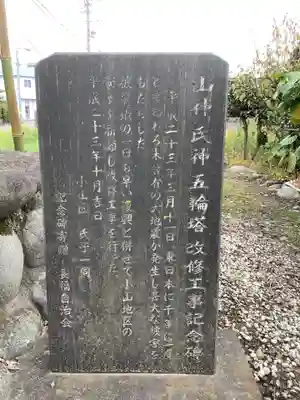 山伏氏神五輪塔改修工事記念碑
平成二十三年三月十一日東日本に千年に一度
と言われる未曾有の大地震が発生し甚大な被害を
もたらした
被災地の一日も早い復興と併せて小山地区の
安寧を祈願し改修工事を行った
平成二十三年十月吉日
小山区 氏子一同
記念碑寄贈 長福自治会